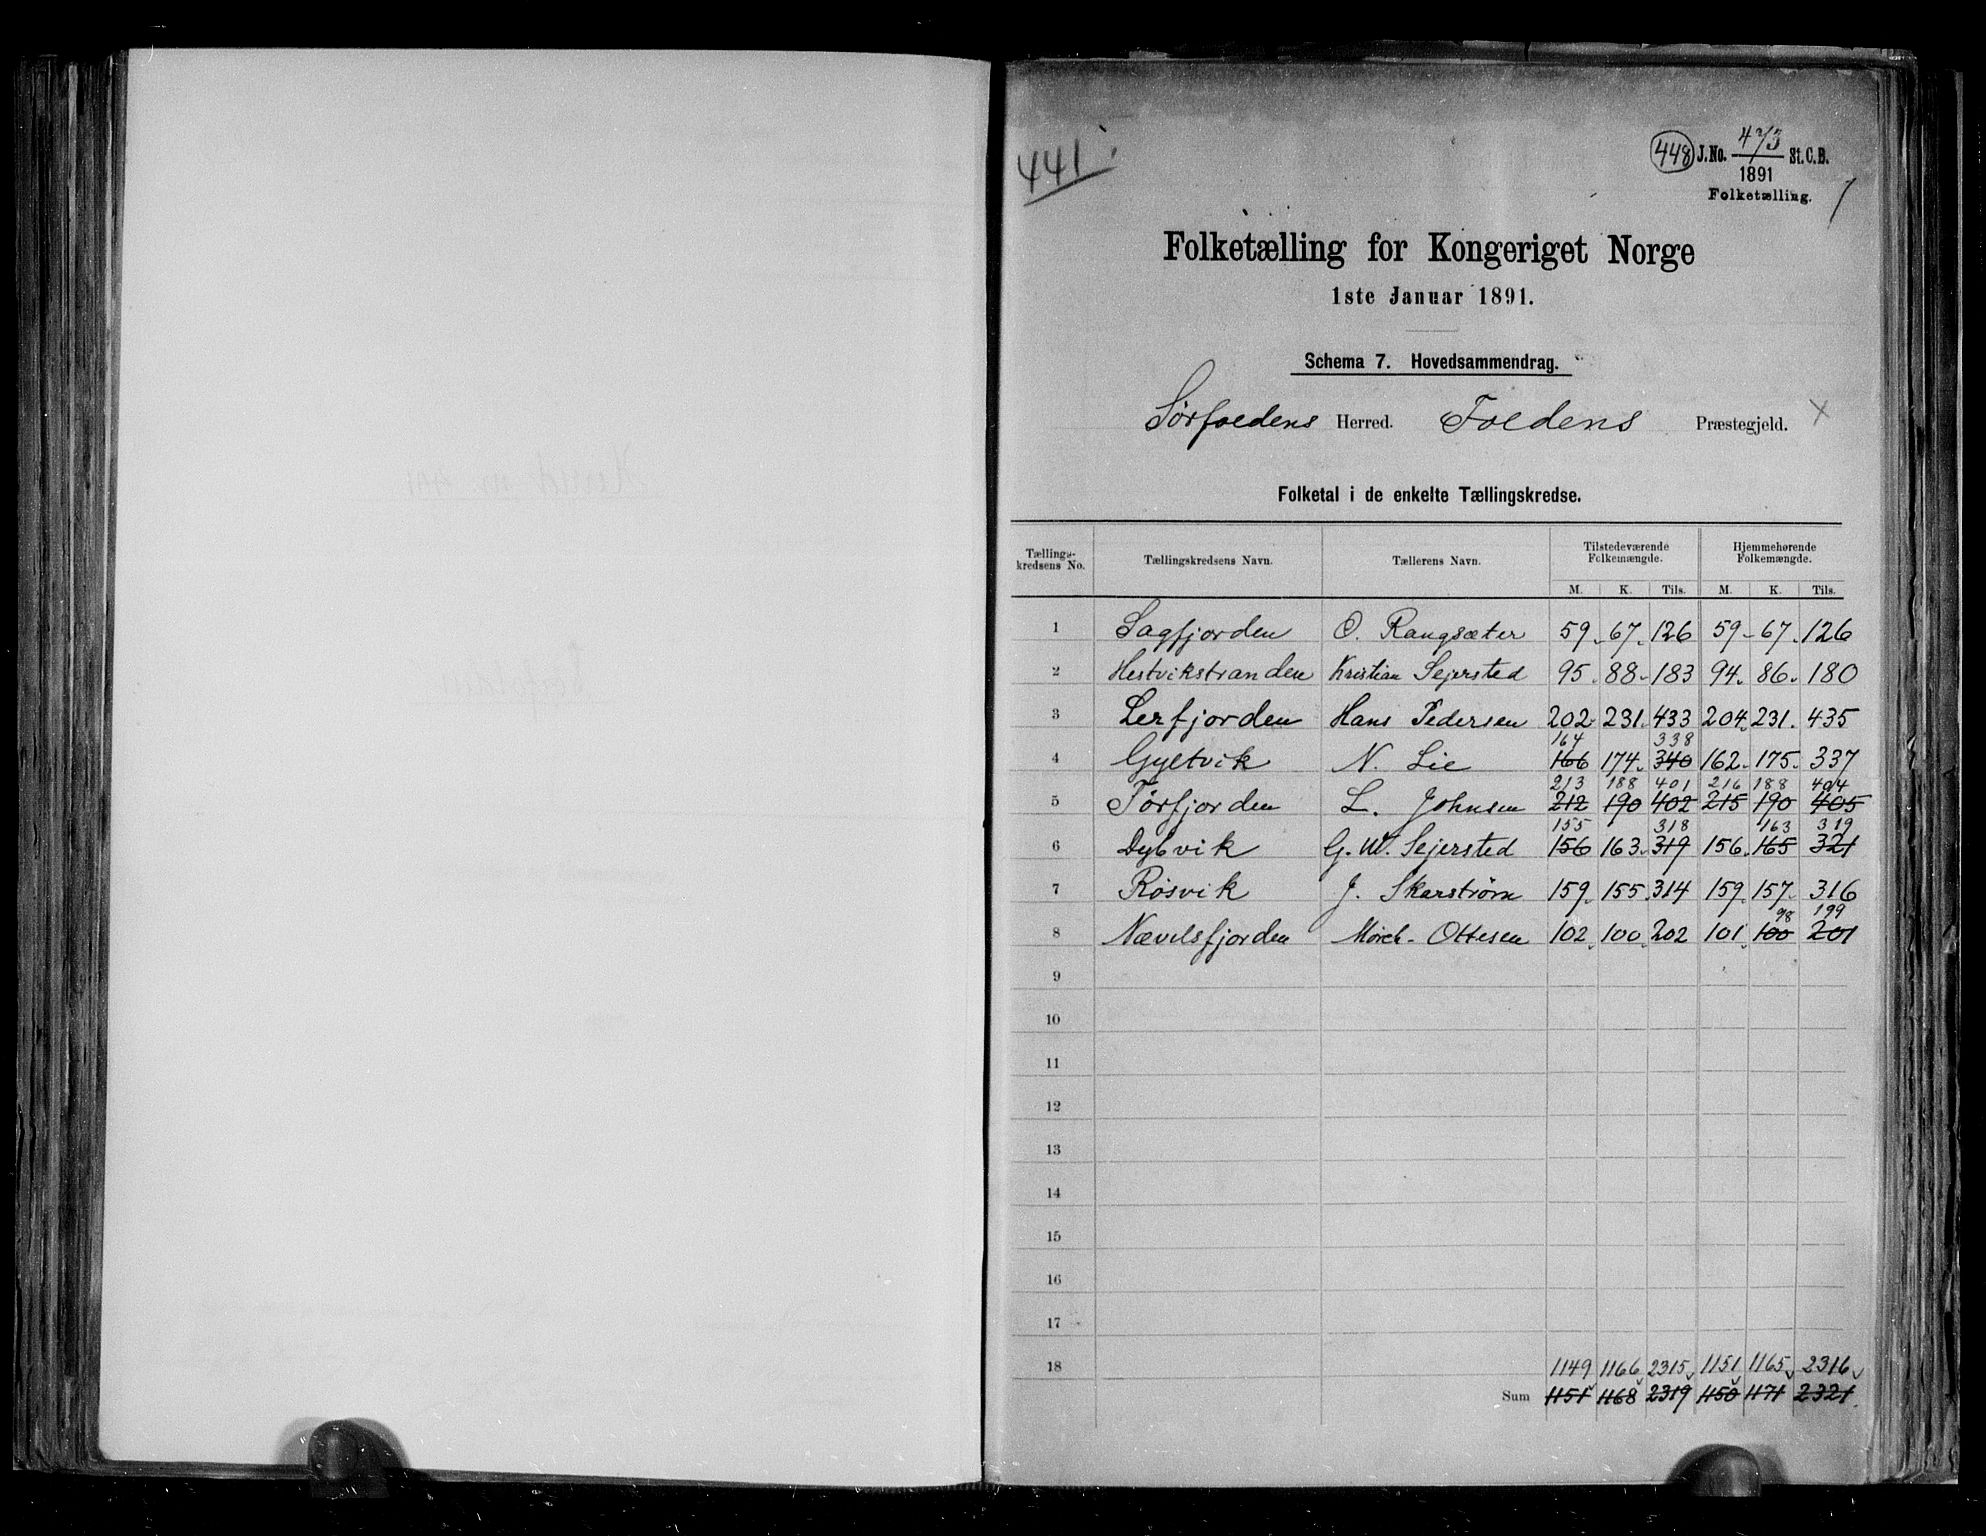 441
448 J.No. 473/1891 St.C.B.
Folketælling.
Folketælling for Kongeriget Norge
1ste Januar 1891.
Schema 7. Hovedsammendrag.
Sørfoldens Herred. Foldens Præstegjeld.
Folketal i de enkelte Tællingskredse.
Tællings-kredsens No. | Tællingskredsens Navn. | Tællerens Navn. | Tilstedeværende Folkemængde. | Hjemmehørende Folkemængde.
M. | K. | Tils. | M. | K. | Tils.
1 Sagfjorden O. Rangsæter 59 67 126 59 67 126
2 Hestvikstranden Kristian Sejersted 95 88 183 94 86 180
3 Lerfjorden Hans Pedersen 202 231 433 204 231 435
164 338
4 Gyltvik N. Lie 166 174 340 162 175 337
213 188 401 216 188 404
5 Tørfjorden L. Johnsen 212 190 402 215 190 405
155 318 163 319
6 Dybvik G. W. Sejersted 156 163 319 156 165 321
7 Røsvik J. Skarstrøm 159 155 314 159 157 316
98 199
8 Nævelsfjorden Mørch-Ottesen 102 100 202 101 100 201
9
10
11
12
13
14
15
16
17
18 1149 1166 2315 1151 1165 2316
Sum 1151 1168 2319 1150 1171 2321